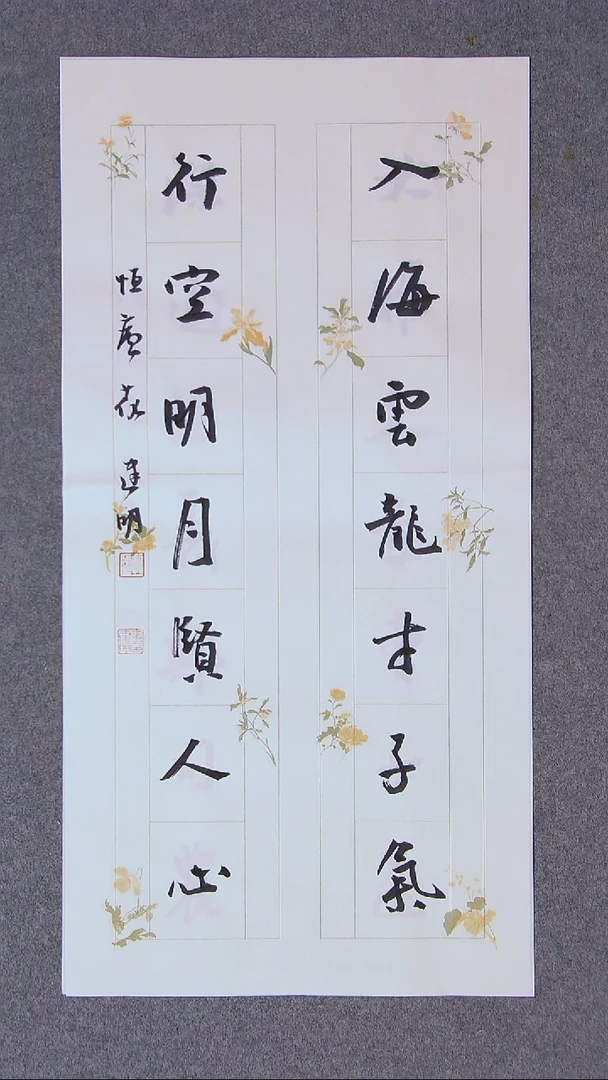 入海雲龍才子氣
行空明月賢人心
恒廬 建明